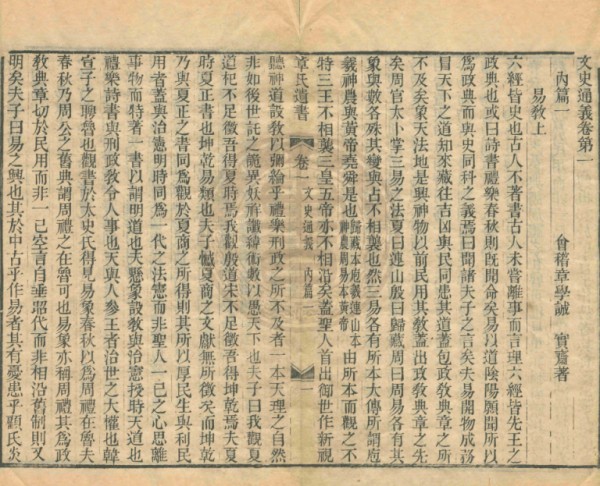 文史通義卷第一
內篇一
會稽章學誠 實齋著
易教上
六經皆史也古人不著書古人未嘗離事而言理六經皆先王之
政典也或曰詩書禮樂春秋則既聞命矣易以道陰陽願聞所以
爲政典而與史同科之義焉曰聞諸夫子之言矣夫易開物成務
冒天下之道知來藏往吉凶與民同患其道蓋包政教典章之所
不及矣象天法地是興神物以前民用其教蓋出政教典章之先
矣周官太卜掌三易之法夏曰連山殷曰歸藏周曰周易各有其
象與數各殊其變與占不相襲也然三易各有所本大傳所謂庖
羲神農與黃帝堯舜是也歸藏本庖羲連山本神農周易本黃帝由所本而觀之不
特三王不相襲三皇五帝亦不相沿矣蓋聖人首出御世作新視
章氏遺書 卷一 文史通義 內篇一
聽神道設教以彌綸乎禮樂刑政之所不及者一本天理之自然
非如後世託之詭異妖祥讖緯術數以愚天下也夫子曰我觀夏
道杞不足徵吾得夏時焉我觀殷道宋不足徵吾得坤乾焉夫夏
時夏正書也坤乾易類也夫子憾夏商之文獻無所徵矣而坤乾
乃與夏正之書同爲觀於夏商之所得則其所以厚民生與利民
用者蓋與治憲明時同爲一代之法憲而非聖人一己之心思離
事物而特著一書以謂明道也夫懸象設教與治憲授時天道也
禮樂詩書與刑政教令人事也天與人參王者治世之大權也韓
宣子之聘魯也觀書於太史氏得見易象春秋以爲周禮在魯夫
春秋乃周公之舊典謂周禮之在魯可也易象亦稱周禮其爲政
教典章切於民用而非一己空言自垂昭代而非相沿舊制則又
明矣夫子曰易之興也其於中古乎作易者其有憂患乎顧氏炎